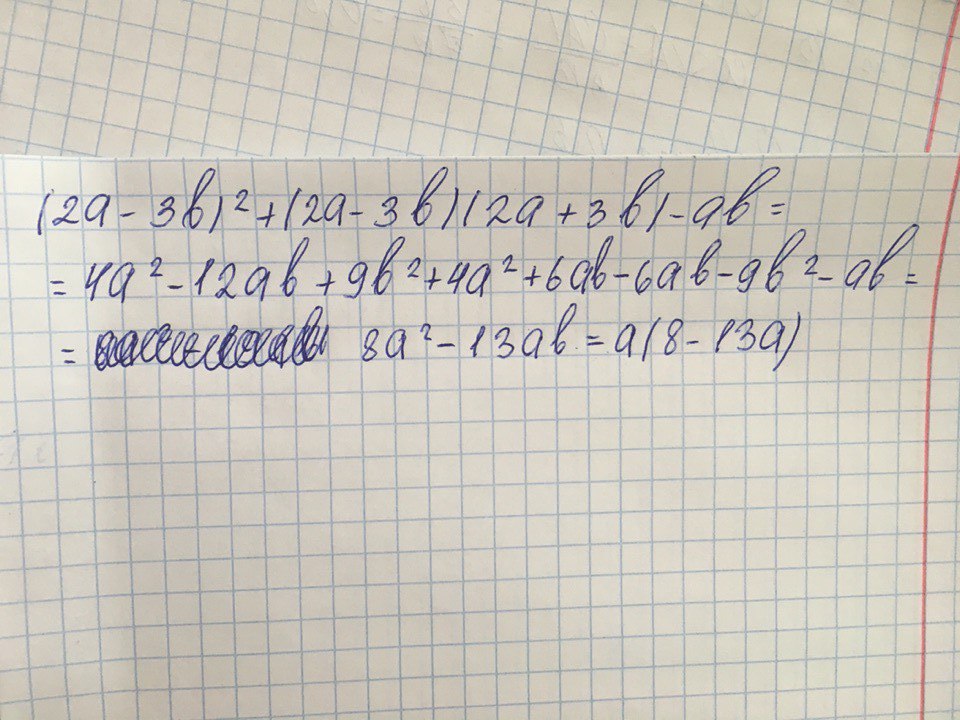 (2a - 3b)² + (2a - 3b)(2a + 3b) - ab =
= 4a² - 12ab + 9b² + 4a² + 6ab - 6ab - 9b² - ab =
= 8a² - 13ab = a(8 - 13a)